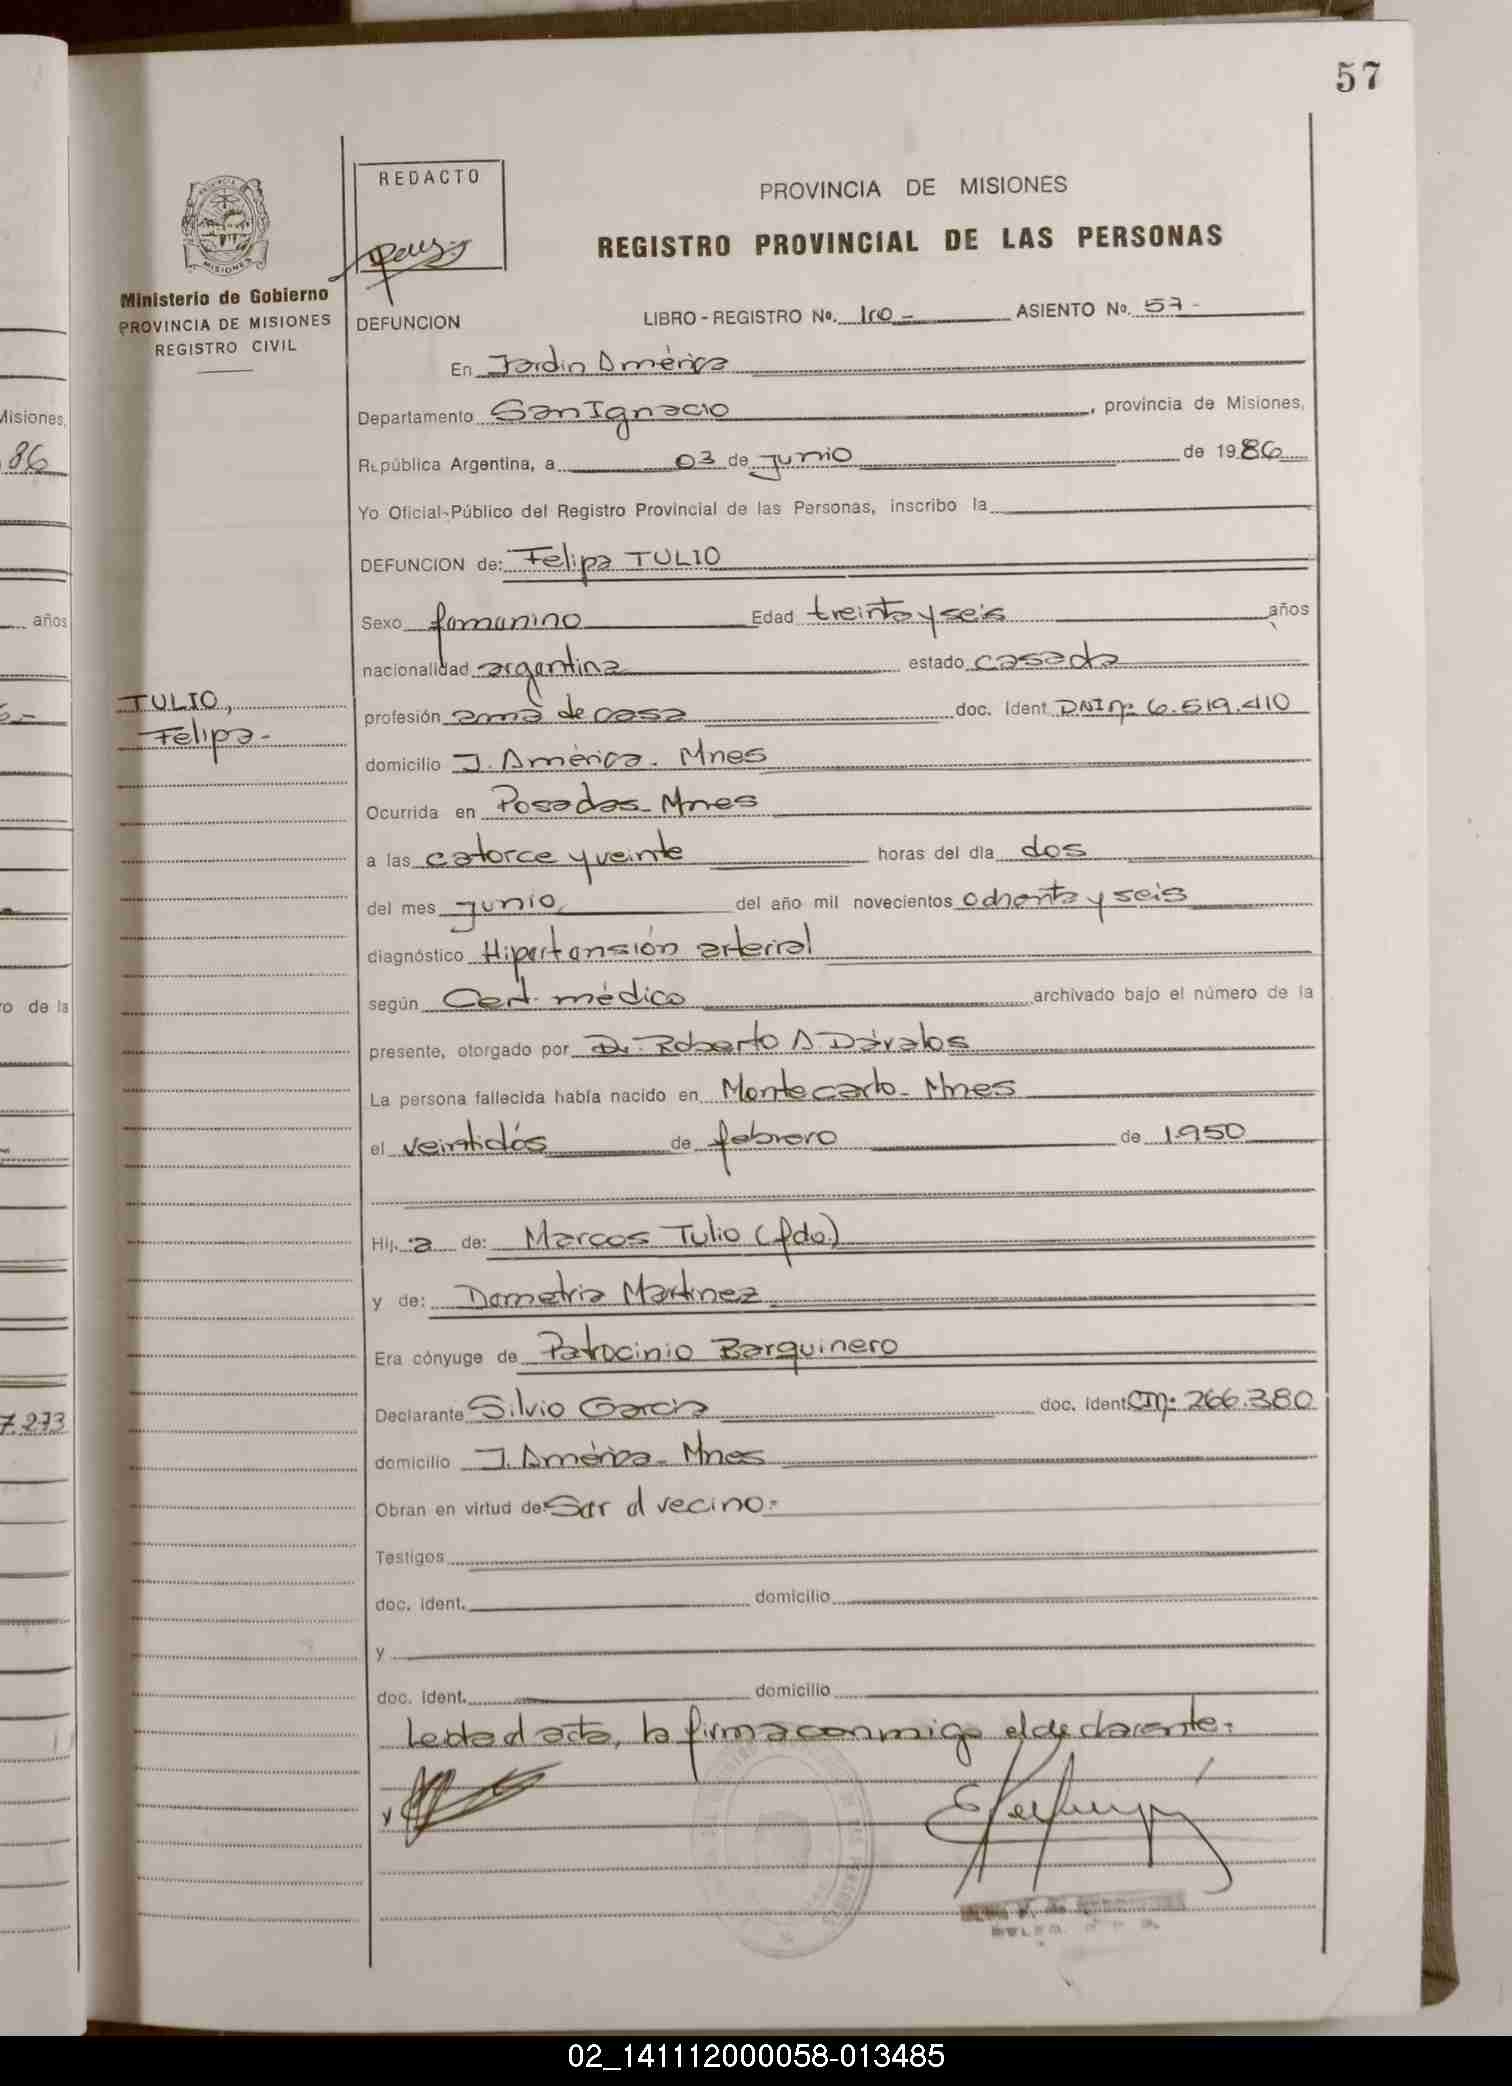 57
REDACTO
PROVINCIA DE MISIONES
REGISTRO PROVINCIAL DE LAS PERSONAS
MISIONES
Ministerio de Gobierno
PROVINCIA DE MISIONES
REGISTRO CIVIL
DEFUNCION LIBRO - REGISTRO No. 1r0 - ASIENTO No. 57 -
En Jardin América
Departamento San Ignacio, provincia de Misiones,
República Argentina, a 03 de junio de 1986
Yo Oficial Público del Registro Provincial de las Personas, inscribo la
DEFUNCION de: Felipa TULIO
Sexo femenino Edad treinta y seis años
nacionalidad argentina estado casada
TULIO,
Felipa-
profesión ama de casa doc. Ident. DNI nº 6.519.410
domicilio J. América. Mnes
Ocurrida en Posadas-Mnes
a las catorce y veinte horas del día dos
del mes junio del año mil novecientos ochenta y seis
diagnóstico Hipertensión arterial
según Cert. médico archivado bajo el número de la
presente, otorgado por Dr. Roberto A Dávalos
La persona fallecida había nacido en Montecarlo-Mnes
el veintidós de febrero de 1950
Hij. a de: Marcos Tulio (fdo)
y de: Demetria Martinez
Era cónyuge de Patrocinio Barquinero
Declarante Silvio Garcia doc. ident. CI nº 266.380
domicilio J. América-Mnes
Obran en virtud de: Ser el vecino-
Testigos
doc. ident. domicilio
y
doc. ident. domicilio
Leida el acta, la firma conmigo el declarante.
Misiones,
86
años
6-
ro de la
7.273
02_141112000058-013485